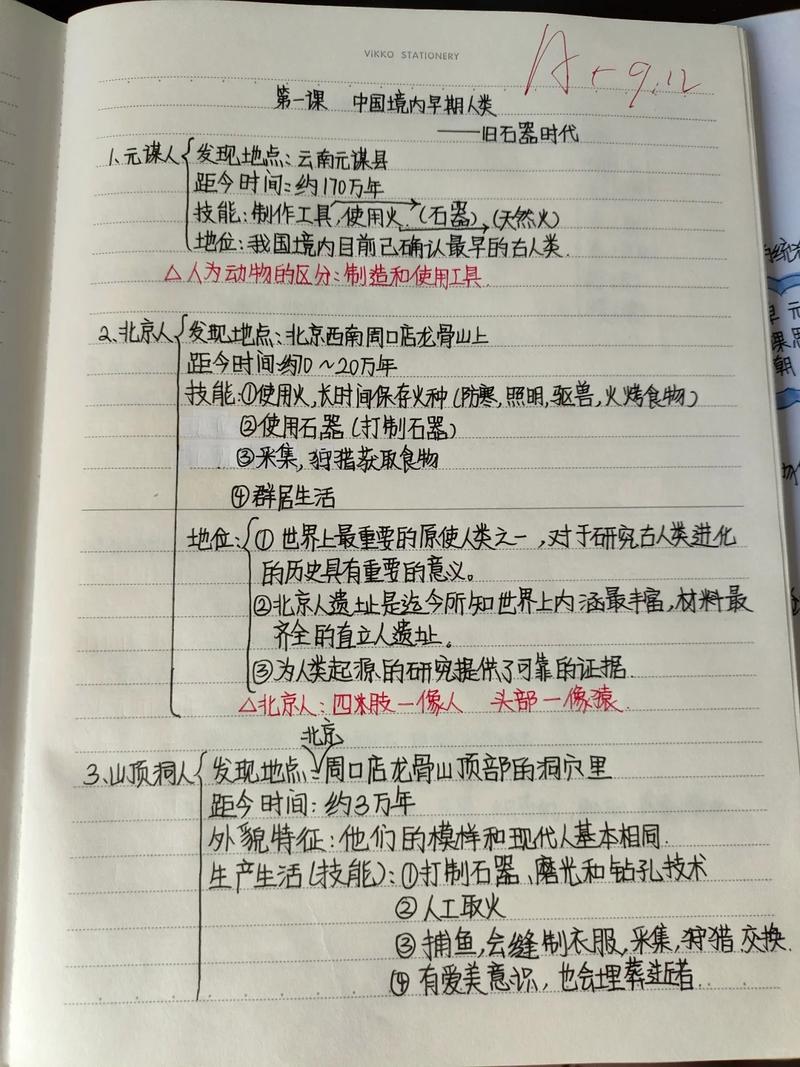 ViKKO STATIONERY
A+ 9.12
第一课 中国境内早期人类
——旧石器时代
1、元谋人 发现地点：云南元谋县
距今时间：约170万年
技能：制作工具，使用火（石器）（天然火）
地位：我国境内目前已确认最早的古人类.
△人为动物的区分：制造和使用工具.
2、北京人 发现地点：北京西南周口店龙骨山上
距今时间：约70～20万年
技能：①使用火，长时间保存火种（防寒，照明，驱兽，火烤食物）
②使用石器（打制石器）
③采集，狩猎获取食物
④群居生活
地位：①世界上最重要的原使人类之一，对于研究古人类进化
的历史具有重要的意义。
②北京人遗址是迄今所知世界上内涵最丰富，材料最
齐全的直立人遗址。
③为人类起源的研究提供了可靠的证据.
△北京人：四肢一像人 头部一像猿.
北京
3、山顶洞人 发现地点：周口店龙骨山顶部的洞穴里
距今时间：约3万年
外貌特征：他们的模样和现代人基本相同.
生产生活（技能）：①打制石器、磨光和钻孔技术
②人工取火
③捕鱼，会缝制衣服，采集，狩猎 交换.
④有爱美意识，也会埋葬逝者.